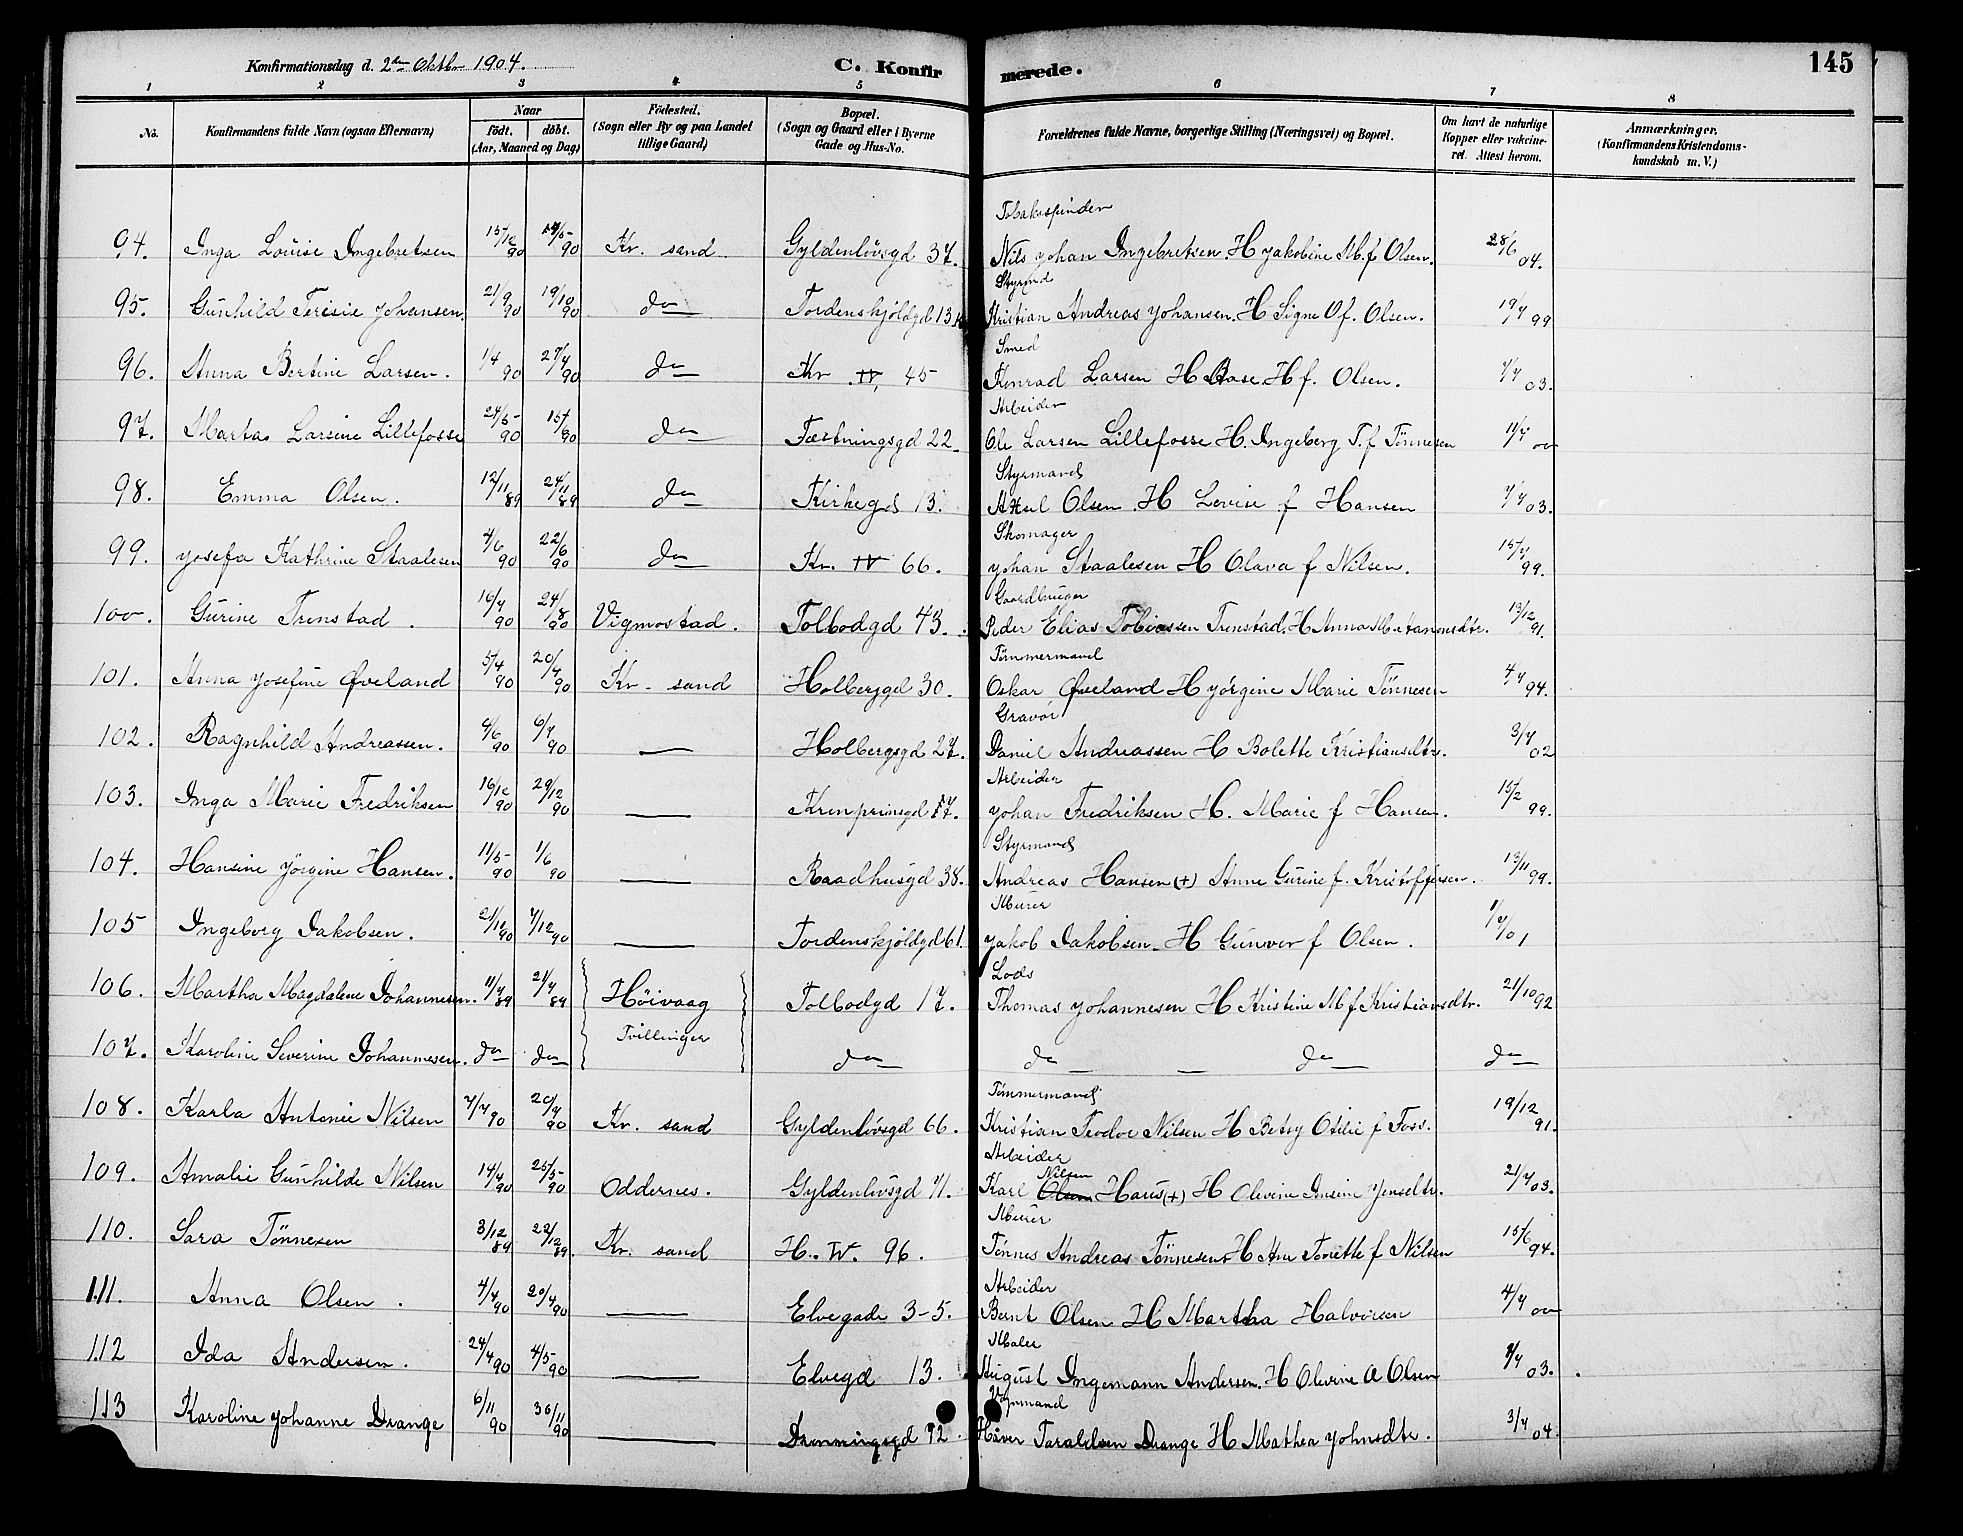 Konfirmationsdag d. 2den Oktbr 1904. C. Konfir merede. 145
1 2 3 4 5 6 7 8
No. Konfirmandens fulde Navn (ogsaa Efternavn) Naar født. døbt. (Aar, Maaned og Dag) Fødested. (Sogn eller By og paa Landet tillige Gaard) Bopæl. (Sogn og Gaard eller i Byerne Gade og Hus-No. Forældrenes fulde Navne, borgerlige Stilling (Næringsvei) og Bopæl. Om havt de naturlige Kopper eller vakcineret. Attest herom. Anmærkninger. (Konfirmandens Kristendomskundskab m. V.)
Tobakspinder
94. Inga Louise Ingebretsen 90 90 Kr. sand Gyldenløvsgd 37. Nils Johan Ingebretsen. H Jakobine M. f Olsen. 28/6 04.
Styrmd
95. Gunhild Teresie Johansen. 21/9 90 19/10 90 do Tordenskjöldgd 13 Kristian Andreas Johansen. H Signe O f. Olsen. 19/7 99
Smed
96. Anna Bertine Larsen. 1/4 90 27/4 90 do Kr. IV, 45 Konrad Larsen H Aase H f. Olsen. 03.
Arbeider
97. Marta Larsine Lillefosse 24/5 90 90 do Fæstningsgd 22. Ole Larsen Lillefosse H. Ingeberg T. f Tönnesen 00
Styrmand
98. Emma Olsen. 12/11 89 24/11 89 do Kirkegd 13. Axel Olsen. H Lovise f Hansen 03.
Skomager
99. Josefa Kathrine Staalesen 4/6 90 22/6 90 do Kr. IV 66. Johan Staalesen H Olava f Nilsen. 99.
Gaardbruger
100. Gurine Trenstad. 16/7 90 24/8 90 Vigmostad. Tolbodgd 43. Peder Elias Tobiassen Trenstad. H Anna 13/12 91.
Tømmermand
101. Anna Josefine Øveland 5/4 90 20/4 90 Kr. sand Holbergd 30. Oskar Øveland H Jörgine Marie Tönnesen 94.
Gravør
102. Ragnhild Andreassen. 4/6 90 6/7 90 — Holbergsgd 27. Daniel Andreassen H Bolette Kristiansdtr. 3/7 02
Arbeider
103. Inga Marie Fredriksen 90 29/12 90 — Kronprinsgd Johan Fredriksen H. Marie f Hansen. 15/2 99.
Styrmand
104. Hansine Jörgine Hansen. 11/5 90 1/6 90 — Raadhusgd 38. Andreas Hansen (+) Anne Gurine f. Kristoffersen. 13/11 99.
Murer
105 Ingeborg Jakobsen. 90 7/12 90 — Tordenskjöldgd 61. Jakob Jakobsen. H Gunvor f Olsen. 01
Lods
106. Martha Magdalene Johannesen. 11/7 89 21/7 89 Höivaag Tolbodgd 17. Thomas Johannesen H Kristine M f Kristiansdtr. 21/10 92
Tvillinger
107. Karoline Severine Johannesen. do do do do do do
Tömmermand
108. Karla Antonie Nilsen 7/7 90 20/7 90 Kr. sand Gyldenlövsgd 66. Kristian Teodor Nilsen H Betsy Otilie f Foss. 19/12 91.
Arbeider
109. Amalie Gunhilde Nilsen 14/4 90 25/5 90 Oddernes. Gyldenlövsgd 71. Karl Olsen Nilsen Haus (+) H Olivine Jensine Jensdtr. 21/7 03.
Murer
110. Sara Tönnesen 3/12 89 22/12 89. Kr. sand H. W. 96. Tönnes Andreas Tönnesen. H Ane Tonette f Nilsen 15/6 94.
Arbeider
111. Anna Olsen. 4/4 90 20/4 90 — Elvegade 3-5. Bernt Olsen H Martha Halvorsen 4/7 00
Maler
112 Ida Andersen. 24/4 90 4/5 90 — Elvegd 13. August Ingemann Andersen. H Olivine A Olsen 03.
Styrmand
113 Karoline Johanne Drange 6/11 90 30/11 90 — Dronningsgd 72. Håver Taraldsen Drange H Mathea Johnsdtr. 3/7 04.